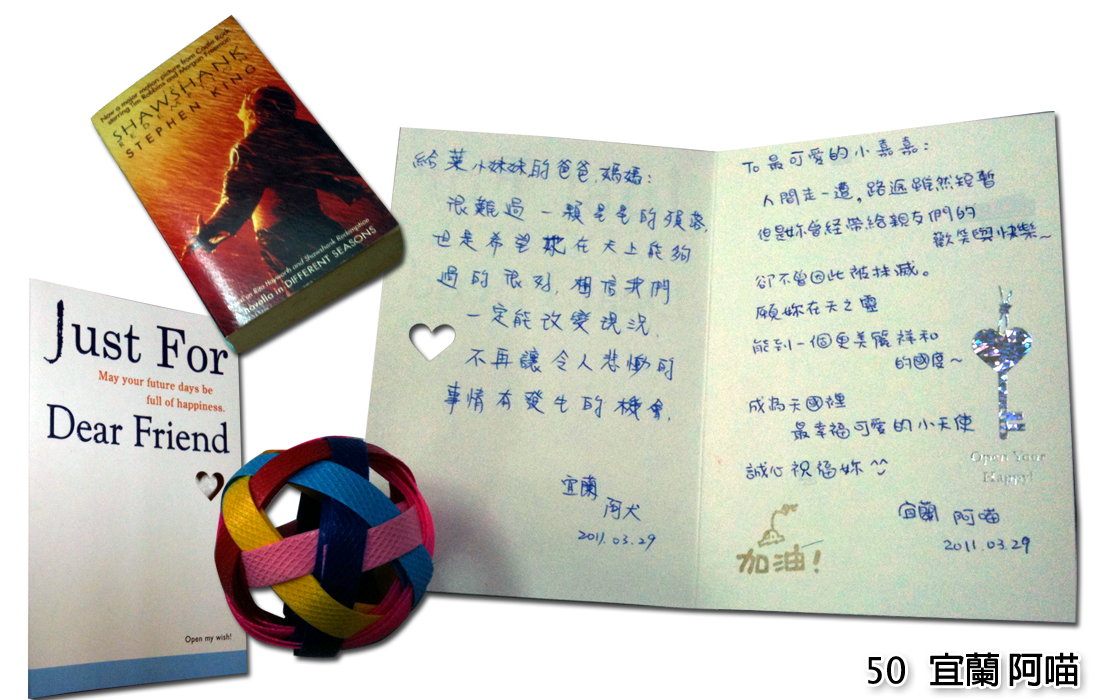 Now a major motion picture from Castle Rock
starring Tim Robbins and Morgan Freeman!
THE
SHAWSHANK
REDEMPTION
STEPHEN KING
Rita Hayworth and Shawshank Redemption
novella in DIFFERENT SEASONS
Just For
May your future days be
full of happiness.
Dear Friend
Open my wish!
給葉小妹妹的爸爸、媽媽:
很難過一顆星星的殞落,
但是希望她在天上能夠
過的很好,相信我們
一定能改變現況.
不再讓令人悲慟的
事情有發生的機會.
宜蘭
阿犬
2011.03.29
To 最可愛的小嘉嘉:
人間走一遭,路途雖然短暫
但是妳曾經帶給親友們的
歡笑與快樂~
卻不會因此被抹滅。
願妳在天之靈
能到一個更美麗祥和
的國度~
成為天國裡
最幸福可愛的小天使
誠心祝福妳 ^^
Open Your
Happy!
宜蘭 阿喵
2011.03.29
加油!
50 宜蘭 阿喵